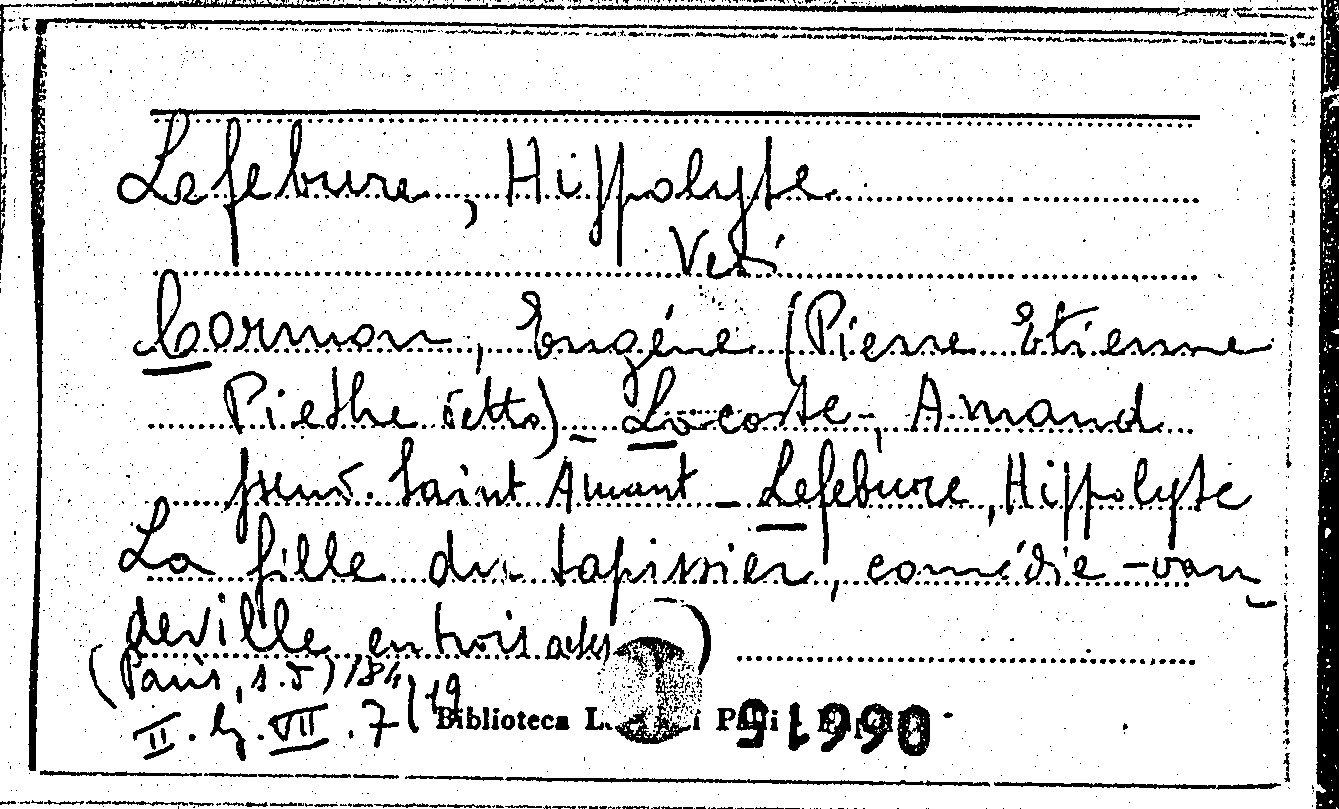 Lefebure, Hippolyte
Vedi
Cormon, Eugéne (Pierre Etienne
Piethe detto) - Lacoste, Amand
pseud. Saint Amant - Lefebure, Hippolyte
La fille du tapissier, comédie-vau-
deville en trois actes )
(Paris, s.d) 184
II. . VII . 7 / 19
Biblioteca
06615